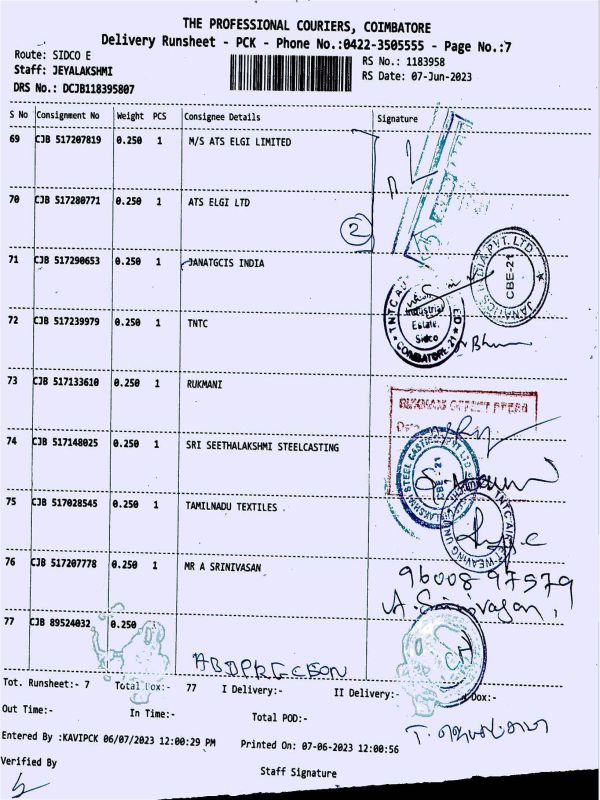 THE PROFESSIONAL COURIERS, COIMBATORE
Delivery Runsheet - PCK - Phone No.:0422-3505555 - Page No.:7
Route: SIDCO E
RS No.: 1183958
Staff: JEYALAKSHMI
RS Date: 07-Jun-2023
DRS No.: DCJB118395807
S No Consignment No Weight PCS Consignee Details Signature
69 CJB 517207819 0.250 1 M/S ATS ELGI LIMITED
70 CJB 517280771 0.250 1 ATS ELGI LTD
2
71 CJB 517290653 0.250 1 JANATGCIS INDIA
JANATICS INDIA PVT. LTD
CBE-21
72 CJB 517239979 0.250 1 TNTC
Industrial
Estate,
Sidco
COIMBATORE-21
73 CJB 517133610 0.250 1 RUKMANI
RUKMANI OFFSET PRESS
74 CJB 517148025 0.250 1 SRI SEETHALAKSHMI STEELCASTING
CBE-21
75 CJB 517028545 0.250 1 TAMILNADU TEXTILES
76 CJB 517207778 0.250 1 MR A SRINIVASAN
96008 97579
A. Srinivasan,
77 CJB 89524032 0.250
Tot. Runsheet:- 7 Total Dox:- 77 I Delivery:- II Delivery:- Dox:-
Out Time:- In Time:- Total POD:-
Entered By :KAVIPCK 06/07/2023 12:00:29 PM Printed On: 07-06-2023 12:00:56
Verified By
Staff Signature